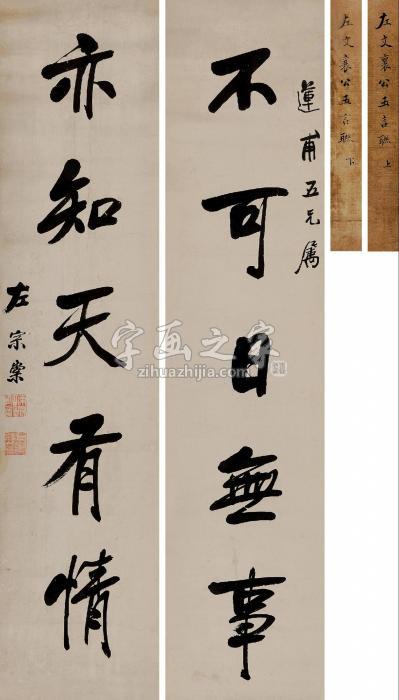 蓮甫五兄屬
不可日無事
亦知天有情
左宗棠
左文襄公五言联 上
左文襄公五言联 下
字画之家
zihuazhijia.com